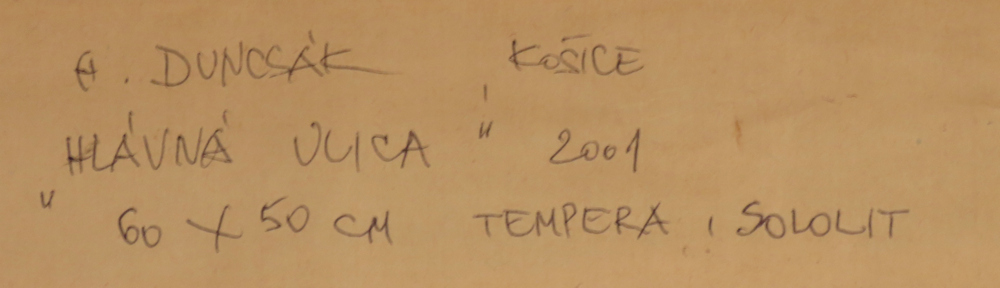 A. DUNCSÁK KOŠICE
HLÁVNÁ ULICA " 2001
" 60 X 50 CM TEMPERA, SOLOLIT